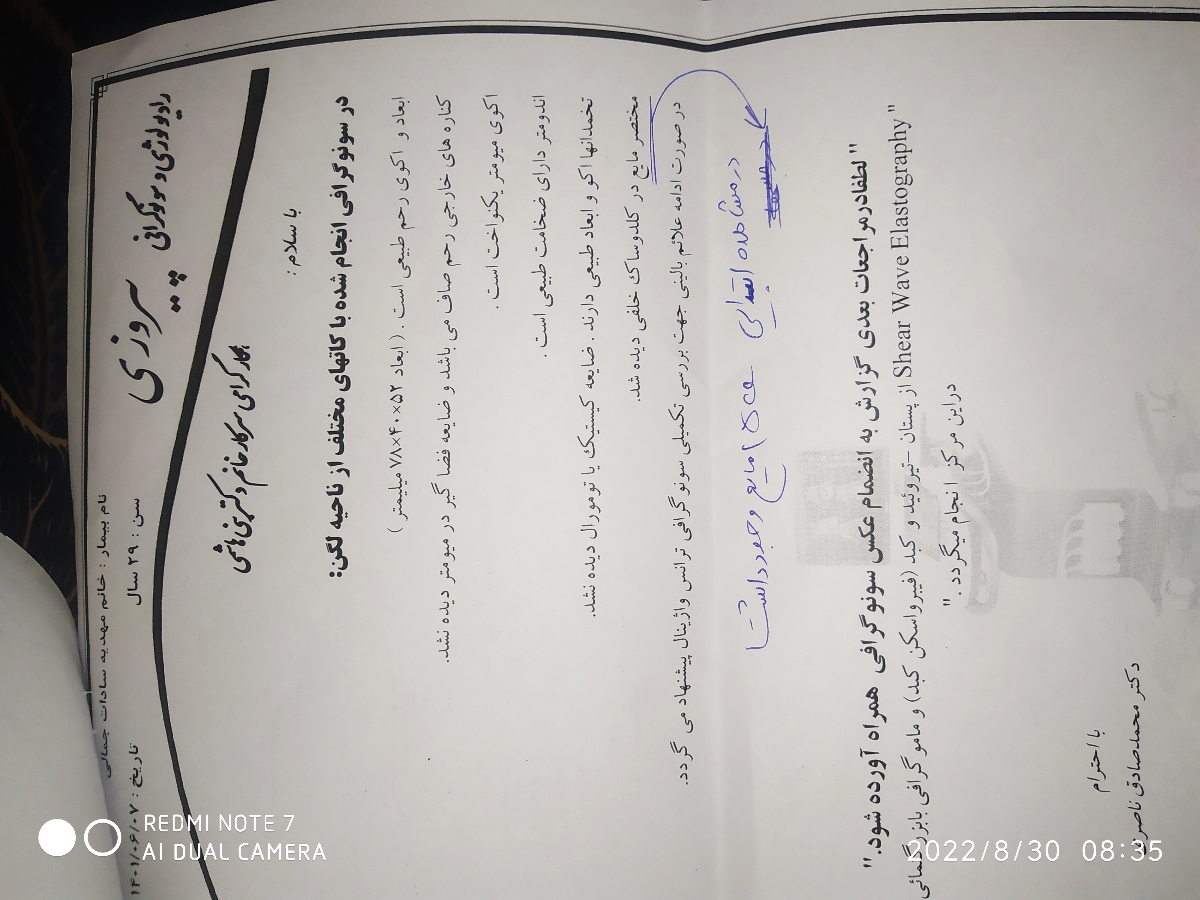 رادیولوژی و سونوگرافی
پیروزی
نام بیمار : خانم مهدیه سادات جمالی
سن : ۲۹ سال
تاریخ : ۱۴۰۱/۰۶/۰۷
همکار گرامی سرکار خانم دکتر بنی هاشمی
با سلام :
در سونوگرافی انجام شده با کاتهای مختلف از ناحیه لگن:
ابعاد و اکوی رحم طبیعی است . ( ابعاد ۵۲×۴۰×۷۸ میلیمتر )
کناره های خارجی رحم صاف می باشد و ضایعه فضا گیر در میومتر دیده نشد.
اکوی میومتر یکنواخت است .
اندومتر دارای ضخامت طبیعی است .
تخمدانها اکو و ابعاد طبیعی دارند . ضایعه کیستیک یا تومورال دیده نشد.
مختصر مایع در کلدوساک خلفی دیده شد.
در صورت ادامه علائم بالینی جهت بررسی تکمیلی سونوگرافی ترانس واژینال پیشنهاد می گردد.
در مشاهده ابتدایی
مایع وجود داشت
"لطفادرمراجعات بعدی گزارش به انضمام عکس سونوگرافی همراه آورده شود."
"Shear Wave Elastography از پستان -تیروئید و کبد (فیبرواسکن کبد) و ماموگرافی بابزرگنمائی
دراین مرکز انجام میگردد . "
با احترام
دکتر محمدصادق ناصرپور
REDMI NOTE 7
AI DUAL CAMERA
2022/8/30 08:35